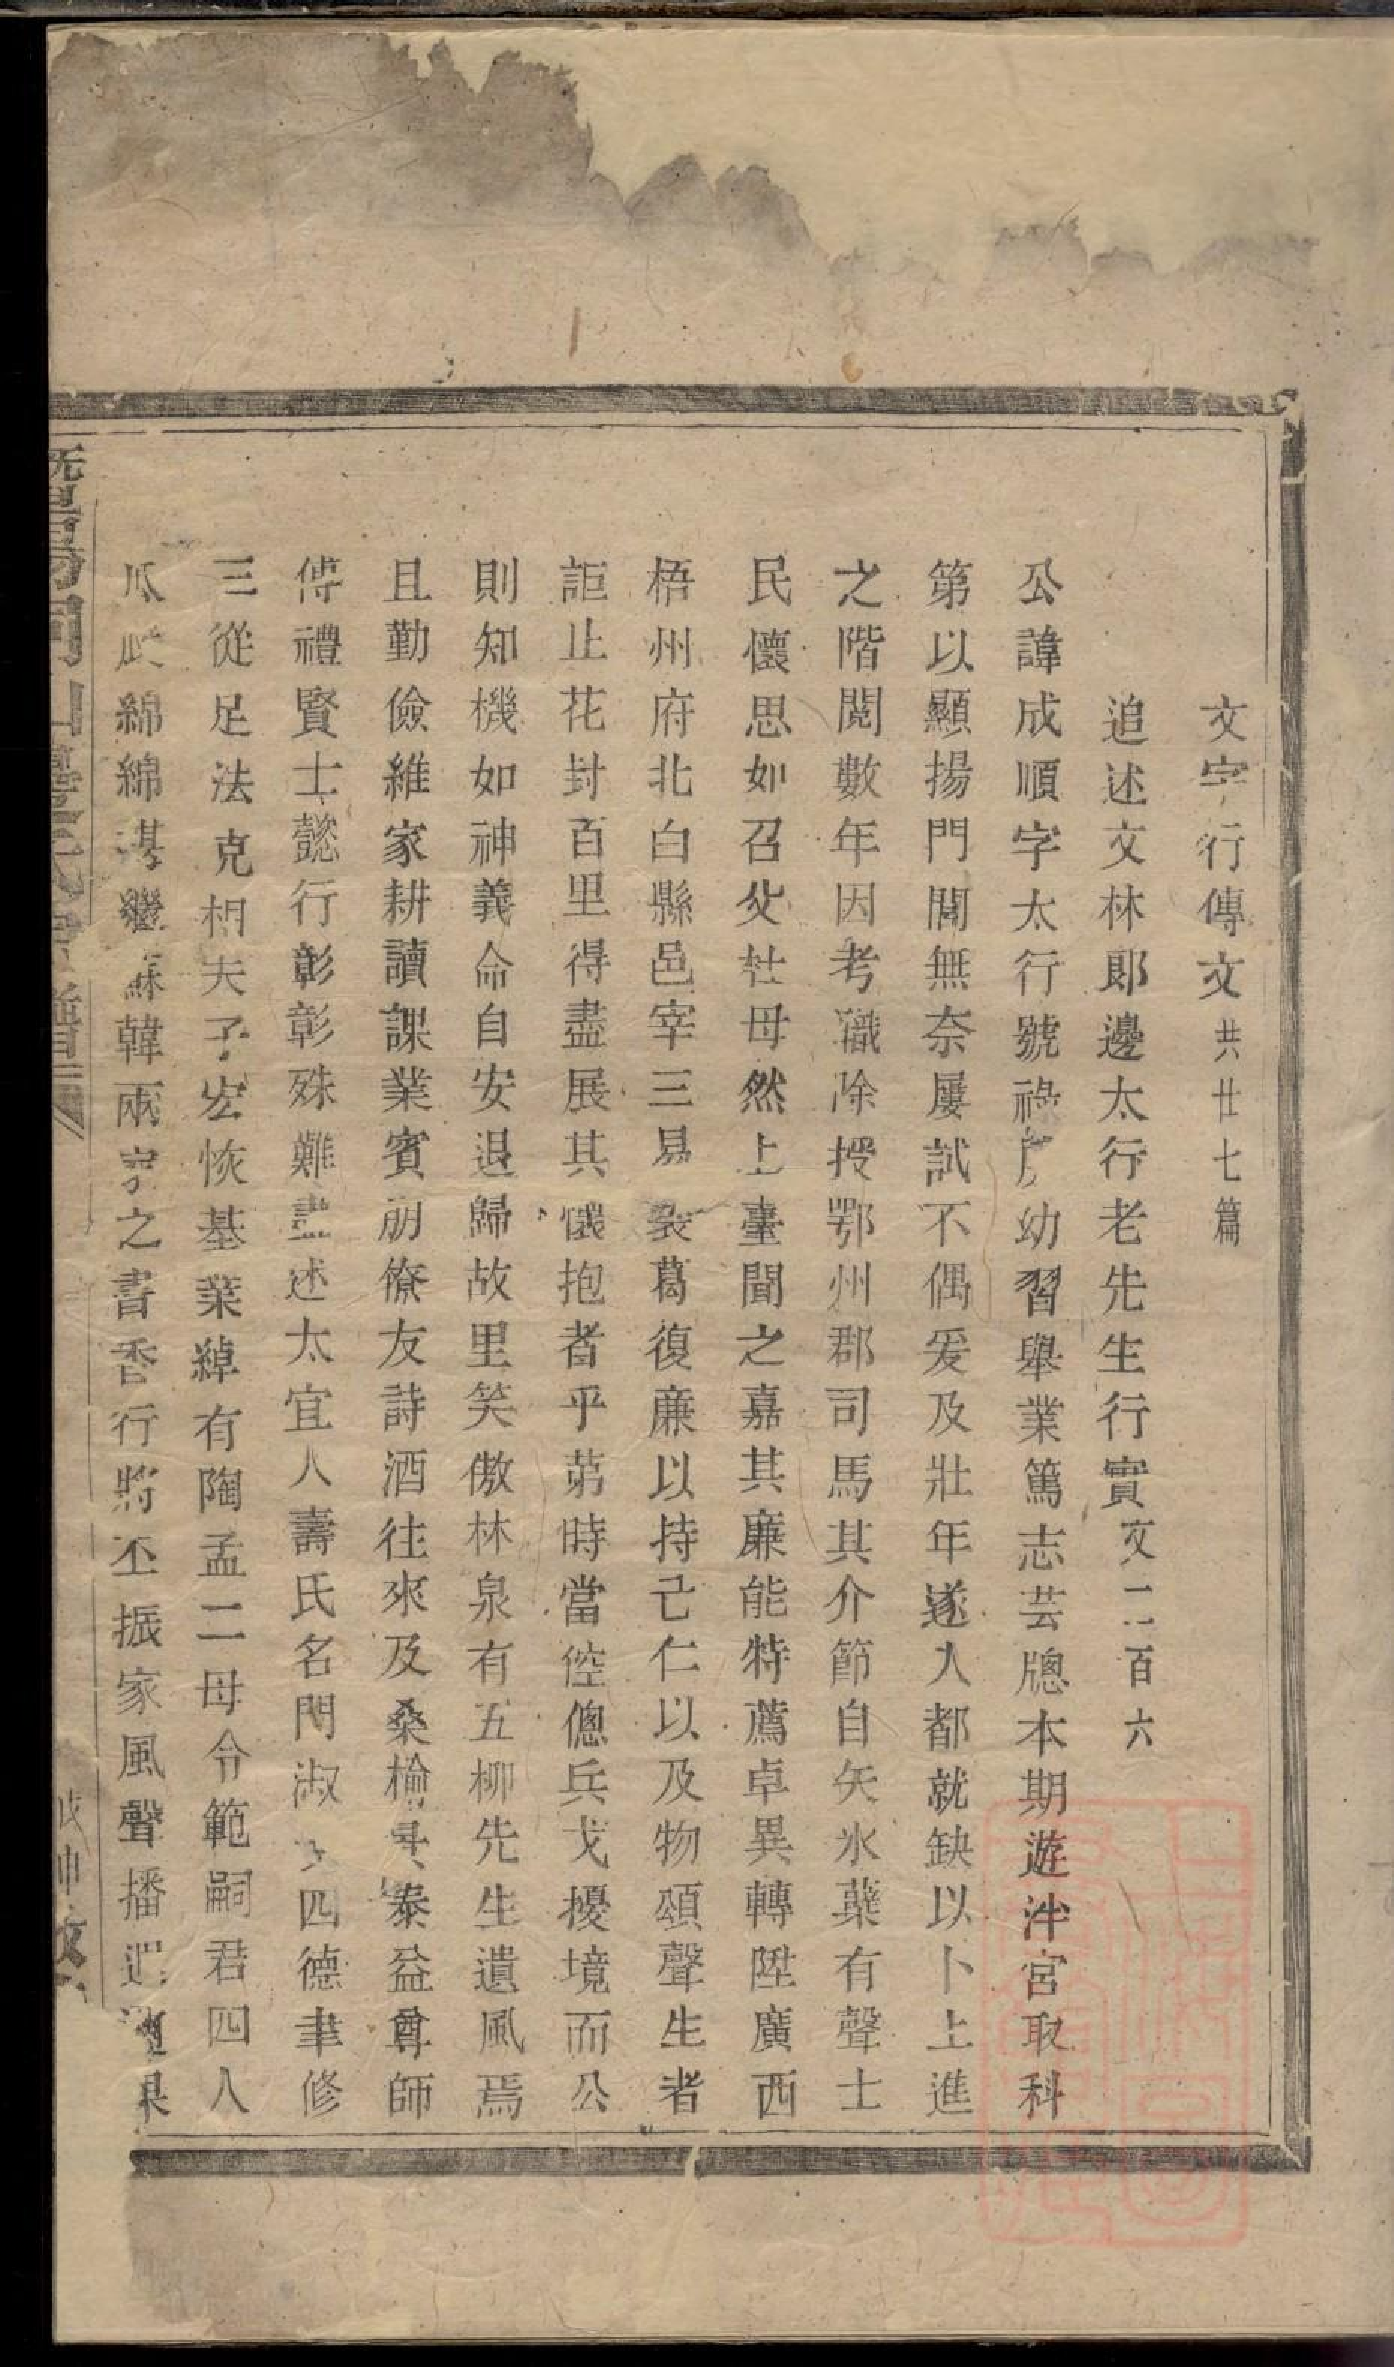 文字行傳文共廿七篇
追述文林郎邊太行老先生行實文二百六
公諱成順字太行號祿幼習舉業篤志芸牕本期遊泮宮取科
第以顯揚門閭無奈屢試不偶爰及壯年遂入都就缺以卜上進
之階閱數年因考職除授鄂州郡司馬其介節自矢氷蘗有聲士
民懷思如召父杜母然上臺聞之嘉其廉能特薦卓異轉陞廣西
梧州府北白縣邑宰三易裘葛復廉以持己仁以及物頌聲生者
詎止花封百里得盡展其懷抱者乎苐時當倥傯兵戈擾境而公
則知機如神義命自安退歸故里笑傲林泉有五柳先生遺風焉
且勤儉維家耕讀課業賓朋僚友詩酒往來及桑榆景泰益尊師
傅禮賢士懿行彰彰殊難盡述太宜人壽氏名門淑女四德聿修
三從足法克相夫子宏恢基業綽有陶孟二母令範嗣君四人
瓜瓞綿綿堪繼蘇韓兩家之書香行將丕振家風聲播遐邇果
暨陽同山邊氏宗譜